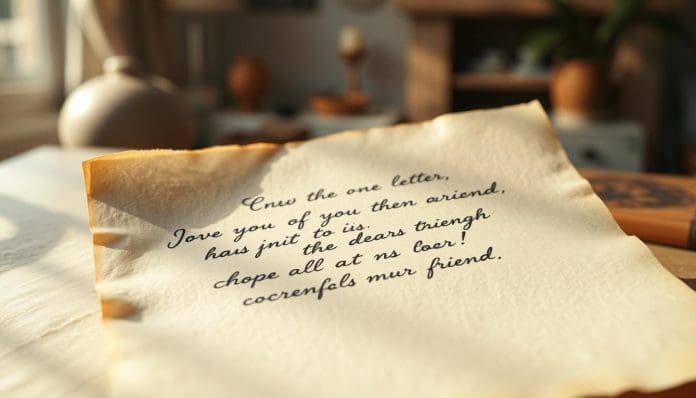 Cnw the one letter,
Jove you of you then ariend,
haus jnit to iis.
the dears triengh
chope all at ns loer!
cocrenfals mur friend.